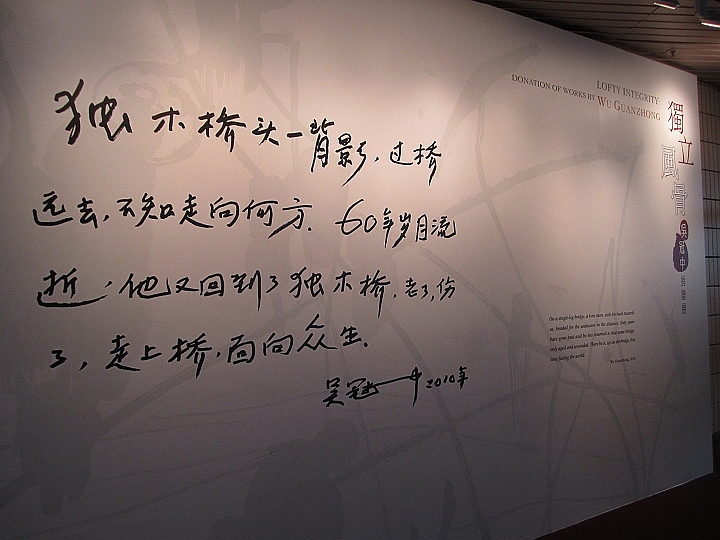 独木桥头一背影，过桥
远去，不知走向何方。60年岁月流
逝，他又回到了独木桥，老了，伤
了，走上桥，面向众生。
吴冠中 2010年
LOFTY INTEGRITY:
DONATION OF WORKS BY WU GUANZHONG
獨立
風骨
吳冠中
On a single-log bridge, a lone man, with his back towards
us, headed for the unknown in the distance. Sixty years
have gone past and he has returned to that same bridge,
only aged and wounded. There he is, up on the bridge, this
time facing the world.
Wu Guanzhong, 2010